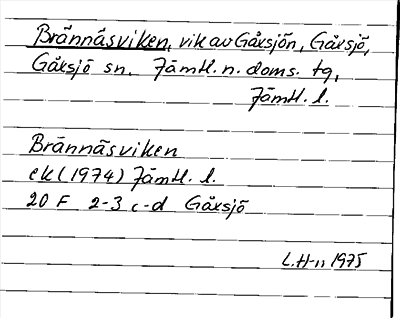 Brännäsviken, vik av Gåxsjön, Gåxsjö,
Gåxsjö sn. Jämtl. n. doms. tg,
Jämtl. l.
Brännäsviken
ek (1974) Jämtl. l.
20 F 2-3 c-d Gåxsjö
L. H-n 1975